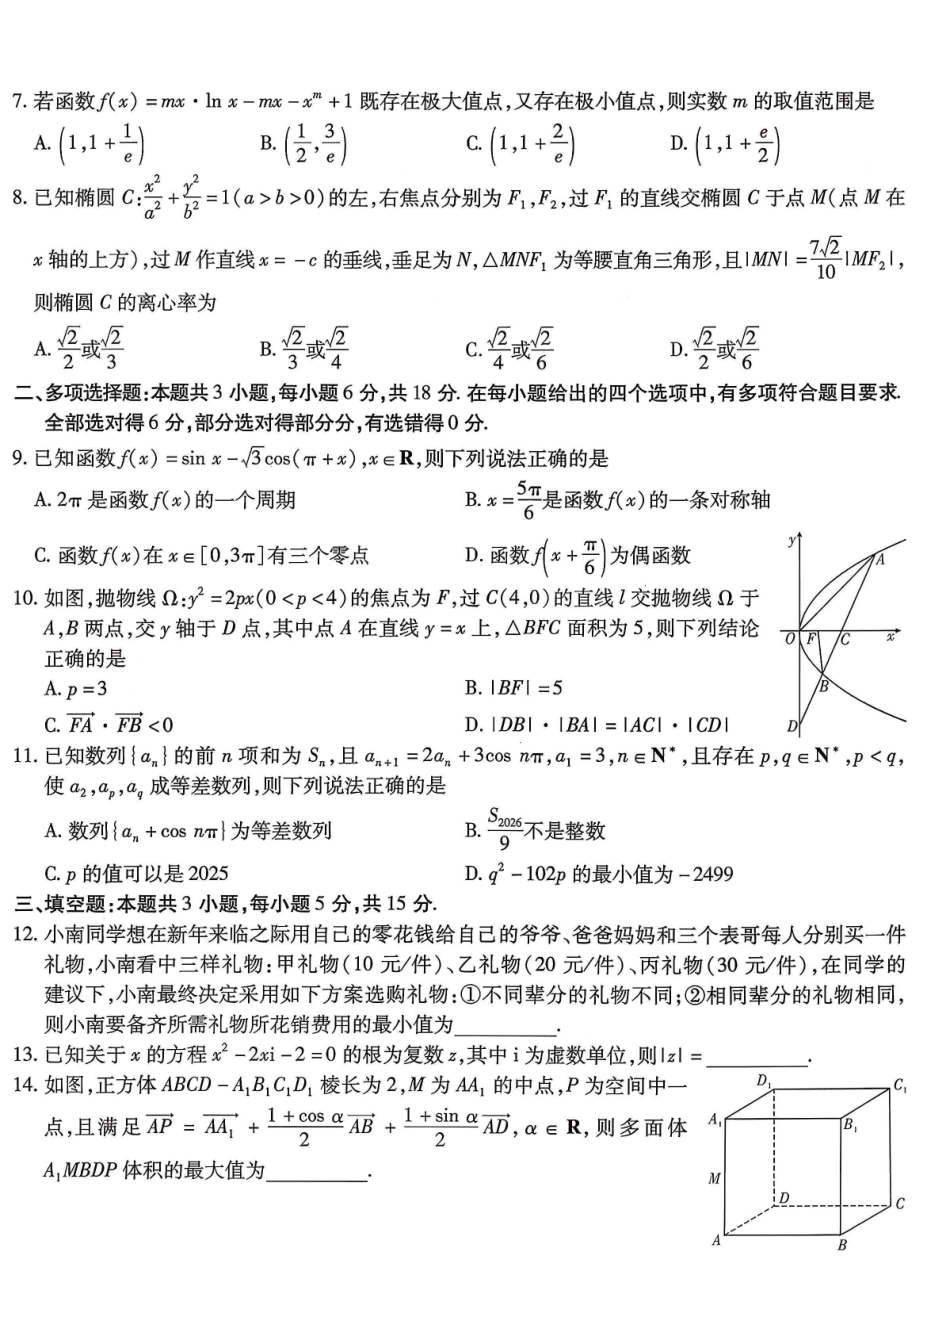 7. 若函数f(x)=mx·ln x-mx-x^m+1既存在极大值点,又存在极小值点,则实数m的取值范围是
A. (1,1+1/e) B. (1/2,3/e) C. (1,1+2/e) D. (1,1+e/2)
8. 已知椭圆C:x²/a²+y²/b²=1(a>b>0)的左,右焦点分别为F₁,F₂,过F₁的直线交椭圆C于点M(点M在
x轴的上方),过M作直线x=-c的垂线,垂足为N,△MNF₁为等腰直角三角形,且|MN|=7√2/10|MF₂|,
则椭圆C的离心率为
A. √2/2或√2/3 B. √2/3或√2/4 C. √2/4或√2/6 D. √2/2或√2/6
二、多项选择题:本题共3小题,每小题6分,共18分. 在每小题给出的四个选项中,有多项符合题目要求.
全部选对得6分,部分选对得部分分,有选错得0分.
9. 已知函数f(x)=sin x-√3cos(π+x),x∈R,则下列说法正确的是
A. 2π是函数f(x)的一个周期 B. x=5π/6是函数f(x)的一条对称轴
C. 函数f(x)在x∈[0,3π]有三个零点 D. 函数f(x+π/6)为偶函数
10. 如图,抛物线Ω:y²=2px(0<p<4)的焦点为F,过C(4,0)的直线l交抛物线Ω于
A,B两点,交y轴于D点,其中点A在直线y=x上,△BFC面积为5,则下列结论
正确的是
A. p=3 B. |BF|=5
C. \overrightarrow{FA}·\overrightarrow{FB}<0 D. |DB|·|BA|=|AC|·|CD|
y
A
O F C x
B
D
11. 已知数列{aₙ}的前n项和为Sₙ,且aₙ₊₁=2aₙ+3cos nπ,a₁=3,n∈N*,且存在p,q∈N*,p<q,
使a₂,a_p,a_q成等差数列,则下列说法正确的是
A. 数列{aₙ+cos nπ}为等差数列 B. S₂₀₂₆/9不是整数
C. p的值可以是2025 D. q²-102p的最小值为-2499
三、填空题:本题共3小题,每小题5分,共15分.
12. 小南同学想在新年来临之际用自己的零花钱给自己的爷爷、爸爸妈妈和三个表哥每人分别买一件
礼物,小南看中三样礼物:甲礼物(10元/件)、乙礼物(20元/件)、丙礼物(30元/件),在同学的
建议下,小南最终决定采用如下方案选购礼物:①不同辈分的礼物不同;②相同辈分的礼物相同,
则小南要备齐所需礼物所花销费用的最小值为________.
13. 已知关于x的方程x²-2xi-2=0的根为复数z,其中i为虚数单位,则|z|=________.
14. 如图,正方体ABCD-A₁B₁C₁D₁棱长为2,M为AA₁的中点,P为空间中一
点,且满足\overrightarrow{AP}=\overrightarrow{AA₁}+(1+cos α)/2 \overrightarrow{AB}+(1+sin α)/2 \overrightarrow{AD},α∈R,则多面体
A₁MBDP体积的最大值为________.
D₁ C₁
A₁ B₁
M
D C
A B